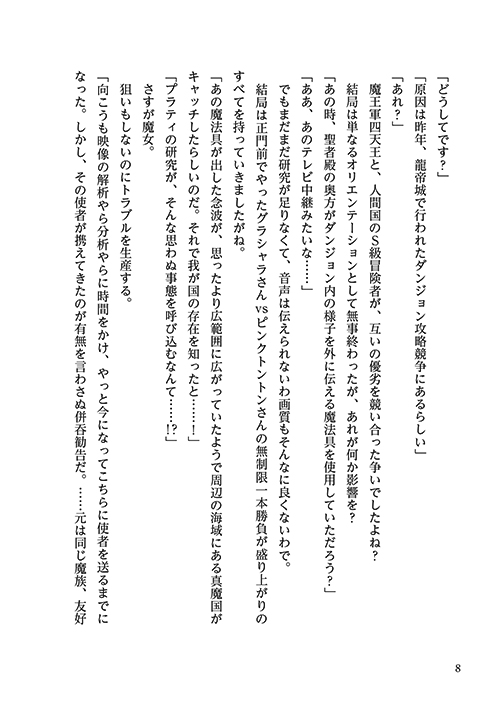 「どうしてです？」
「原因は昨年、龍帝城で行われたダンジョン攻略競争にあるらしい」
「あれ？」
魔王軍四天王と、人間国のＳ級冒険者が、互いの優劣を競い合った争いでしたよね？
結局は単なるオリエンテーションとして無事終わったが、あれが何か影響を？
「あの時、聖者殿の奥方がダンジョン内の様子を外に伝える魔法具を使用していただろう？」
「ああ、あのテレビ中継みたいな……」
でもまだまだ研究が足りなくて、音声は伝えられないわ画質もそんなに良くないわで。
結局は正門前でやったグラシャラさんvsピンクトントンさんの無制限一本勝負が盛り上がりの
すべてを持っていきましたがね。
「あの魔法具が出した念波が、思ったより広範囲に広がっていたようで周辺の海域にある真魔国が
キャッチしたらしいのだ。それで我が国の存在を知ったと……！」
「プラティの研究が、そんな思わぬ事態を呼び込むなんて……!?」
さすが魔女。
狙いもしないのにトラブルを生産する。
「向こうも映像の解析やら分析やらに時間をかけ、やっと今になってこちらに使者を送るまでに
なった。しかし、その使者が携えてきたのが有無を言わさぬ併呑勧告だ。……元は同じ魔族、友好
8